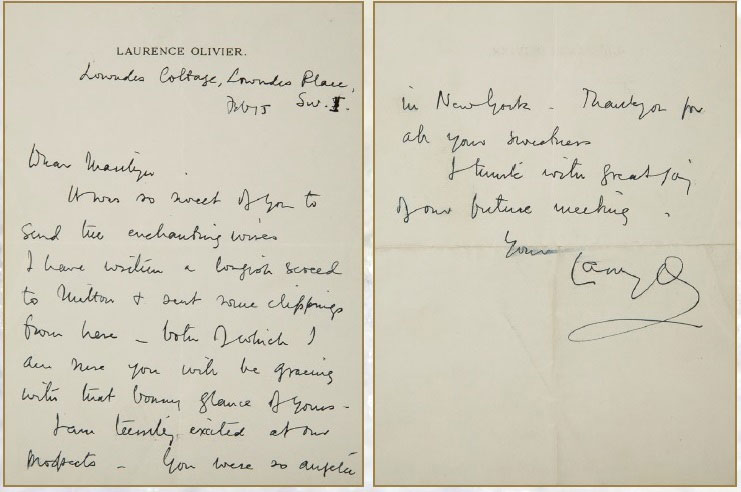 LAURENCE OLIVIER.
Lowndes Cottage, Lowndes Place,
Feb 15 S.W.1.
Dear Marilyn
It was so sweet of you to
send the enchanting wires
I have written a longish screed
to Milton & sent some clippings
from here – both of which I
am sure you will be gracing
with that bonny glance of yours –
I am terribly excited at our
prospects – You were so angelic
in New York – Thank you for
all your sweetness
I think with great joy
of our future meeting.
Yours
Larry O